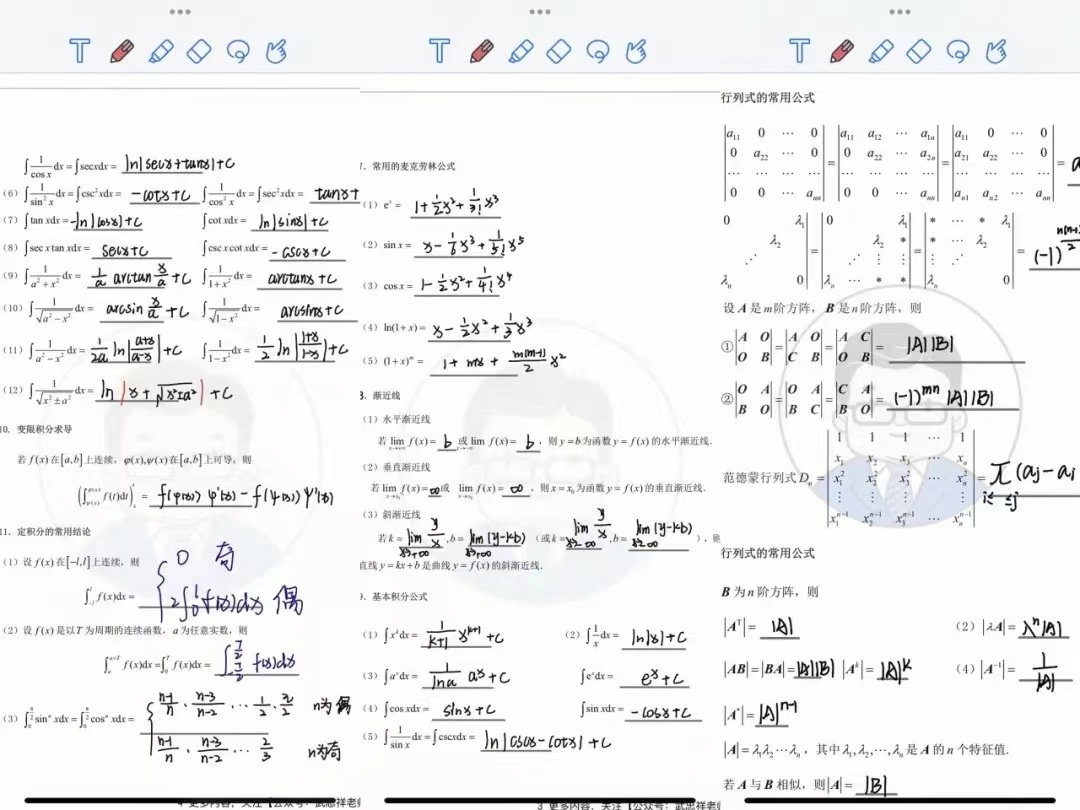 ∫ 1/cos x dx = ∫ sec x dx = ln|secx+tanx|+C
(6) ∫ 1/sin² x dx = ∫ csc² x dx = -cotx+C ∫ 1/cos² x dx = ∫ sec² x dx = tanx+
(7) ∫ tan x dx = -ln|cosx|+C ∫ cot x dx = ln|sinx|+C
(8) ∫ sec x tan x dx = secx+C ∫ csc x cot x dx = -cscx+C
(9) ∫ 1/(a²+x²) dx = 1/a arctan x/a +C ∫ 1/(1+x²) dx = arctanx+C
(10) ∫ 1/√(a²-x²) dx = arcsin x/a +C ∫ 1/√(1-x²) dx = arcsinx+C
(11) ∫ 1/(a²-x²) dx = 1/2a ln|(a+x)/(a-x)|+C ∫ 1/(1-x²) dx = 1/2 ln|(1+x)/(1-x)|+C
(12) ∫ 1/√(x²±a²) dx = ln|x+√(x²±a²)|+C
10. 变限积分求导
若 f(x) 在 [a,b] 上连续，φ(x),ψ(x) 在 [a,b] 上可导，则
(∫_ψ(x)^φ(x) f(t)dt)'_x = f(φ(x)) φ'(x) - f(ψ(x)) ψ'(x)
11. 定积分的常用结论
(1) 设 f(x) 在 [-l,l] 上连续，则
0 奇
∫_-l^l f(x)dx =
2∫_0^l f(x)dx 偶
(2) 设 f(x) 是以 T 为周期的连续函数，a 为任意实数，则
∫_a^(a+T) f(x)dx = ∫_0^T f(x)dx = ∫_(-T/2)^(T/2) f(x)dx
(n-1)/n · (n-3)/(n-2) ⋯ 1/2 · π/2 n为偶
(3) ∫_0^(π/2) sinⁿ x dx = ∫_0^(π/2) cosⁿ x dx =
(n-1)/n · (n-3)/(n-2) ⋯ 2/3 n为奇
更多内容，关注【公众号：武忠祥老师
7. 常用的麦克劳林公式
(1) eˣ = 1+1/2x²+1/3!x³
(2) sin x = x-1/6x³+1/5!x⁵
(3) cos x = 1-1/2x²+1/4!x⁴
(4) ln(1+x) = x-1/2x²+1/3x³
(5) (1+x)ᵐ = 1+mx+m(m-1)/2 x²
8. 渐近线
(1) 水平渐近线
若 lim f(x) = b 或 lim f(x) = b ，则 y=b 为函数 y=f(x) 的水平渐近线.
(2) 垂直渐近线
若 lim f(x) = ∞ 或 lim f(x) = ∞ ，则 x=x₀ 为函数 y=f(x) 的垂直渐近线.
(3) 斜渐近线
若 k = lim_(x→+∞) y/x ,b = lim_(x→+∞) (y-kb) （或 k = lim_(x→-∞) y/x ,b = lim_(x→∞) (y-kb) ），则
直线 y=kx+b 是曲线 y=f(x) 的斜渐近线.
9. 基本积分公式
(1) ∫ xᵏ dx = 1/(k+1) x^(k+1) +C (2) ∫ 1/x dx = ln|x|+C
(3) ∫ aˣ dx = 1/lna aˣ+C ∫ eˣ dx = eˣ+C
(4) ∫ cos x dx = sinx+C ∫ sin x dx = -cosx+C
(5) ∫ 1/sin x dx = ∫ csc x dx = ln|cscx-cotx|+C
3 更多内容，关注【公众号：武忠祥老师
行列式的常用公式
|a₁₁ 0 ⋯ 0| |a₁₁ a₁₂ ⋯ a₁ₙ| |a₁₁ 0 ⋯ 0|
|0 a₂₂ ⋯ 0| = |0 a₂₂ ⋯ a₂ₙ| = |a₂₁ a₂₂ ⋯ 0| = a
|⋯ ⋯ ⋯ ⋯| |⋯ ⋯ ⋯ ⋯| |⋯ ⋯ ⋯ ⋯|
|0 0 ⋯ aₙₙ| |0 0 ⋯ aₙₙ| |aₙ₁ aₙ₂ ⋯ aₙₙ|
|0 λ₁| |0 λ₁| |* ⋯ * λ₁|
|λ₂| = |λ₂ *| = |* ⋯ λ₂| = (-1)^(n(n-1)/2)
|⋰| |⋰ ⋮ ⋮| |⋮ ⋰|
|λₙ 0| |λₙ ⋯ * *| |λₙ 0|
设 A 是 m 阶方阵，B 是 n 阶方阵，则
① |A O; O B| = |A O; C B| = |A C; O B| = |A||B|
② |O A; B O| = |O A; B C| = |C A; B O| = (-1)^mn |A||B|
|1 1 1 ⋯ 1|
|x₁ x₂ x₃ ⋯ xₙ|
范德蒙行列式 Dₙ = |x₁² x₂² x₃² ⋯ xₙ²| = π (aj-ai
|⋮ ⋮ ⋮ ⋮|
|x₁ⁿ⁻¹ x₂ⁿ⁻¹ x₃ⁿ⁻¹ ⋯ xₙⁿ⁻¹|
行列式的常用公式
B 为 n 阶方阵，则
|Aᵀ| = |A| (2) |λA| = λⁿ|A|
|AB| = |BA| = |A||B| |Aᵏ| = |A|ᵏ (4) |A⁻¹| = 1/|A|
|A*| = |A|ⁿ⁻¹
|A| = λ₁λ₂⋯λₙ，其中 λ₁,λ₂,⋯,λₙ 是 A 的 n 个特征值.
若 A 与 B 相似，则 |A| = |B|